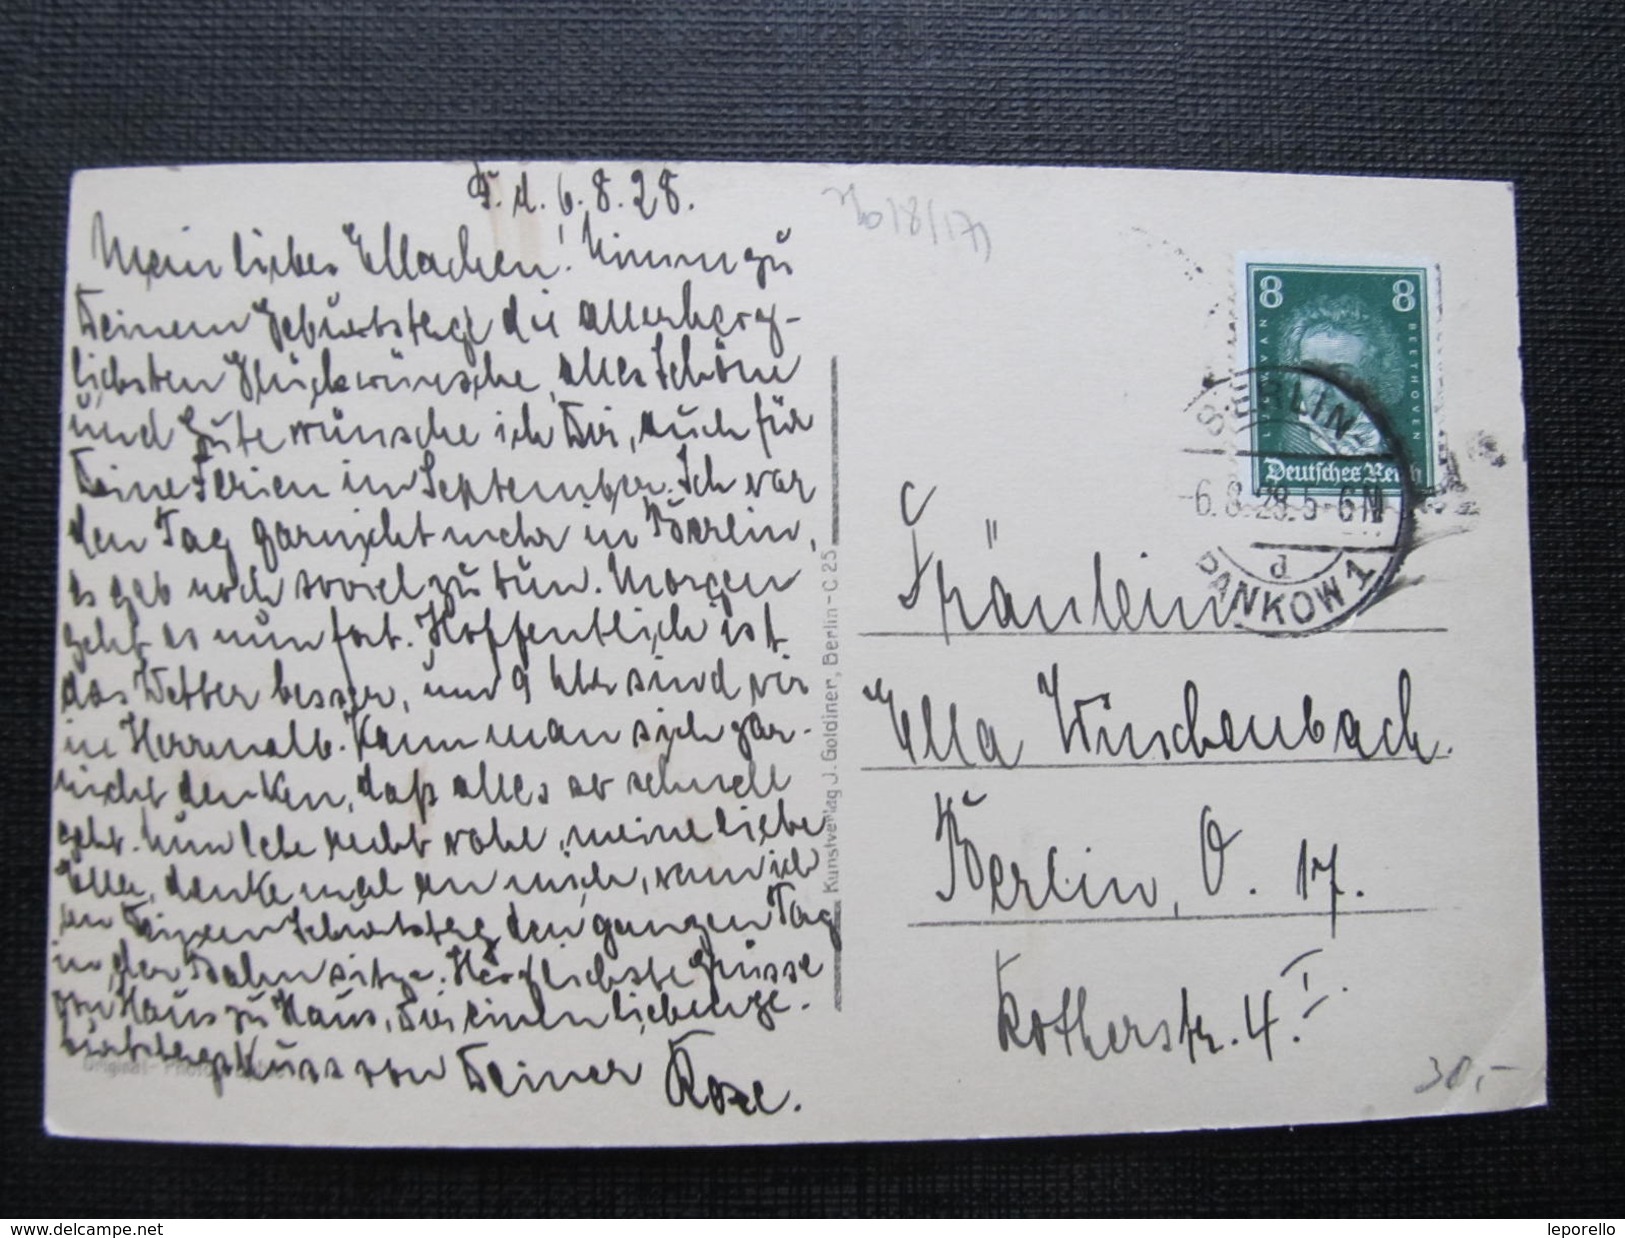 d. 6.8.28.
Mein liebes Ellachen! Nimm zu
Deinem Geburtstage die allerherz-
lichsten Glückwünsche, alles Schöne
und Gute wünsche ich Dir, auch für
Deine Ferien im September. Ich war
den Tag garnicht mehr in Berlin,
es gab noch soviel zu tun. Morgen
geht es nun fort. Hoffentlich ist
das Wetter besser, um 9 Uhr sind wir
in Herrenalb. Kann man sich gar-
nicht denken, daß alles so schnell
geht. Nun lebe recht wohl, meine liebe
Ella, denke mal an mich, wenn ich
an Deinem Geburtstag den ganzen Tag
in der Bahn sitze. Herzlichste Grüsse
von Haus zu Haus, Dir einen lieben Ge-
burtstagskuss von Deiner Rose.
Original-Photographie
Kunstverlag J. Goldiner, Berlin-C 25
8 8
L. v. VAN
BEETHOVEN
Deutsches Reich
BERLIN-
-6.8.28.5-6N
d
PANKOW 1
Fräulein
Ella Wüschenbach.
Berlin, O. 17.
Rotherstr. 4. I.
30,-
delcampe.net
leporello